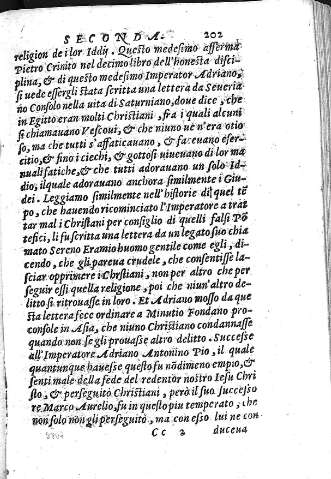 SECONDA. 202
religion de i lor Iddij. Questo medesimo afferma
Pietro Crinito nel decimo libro dell'honesta disci-
plina, & di questo medesimo Imperator Adriano,
si uede essergli stata scritta una lettera da Seueria
no Consolo nella uita di Saturniano, doue dice, che
in Egitto eran molti Christiani, fra i quali alcuni
si chiamauano Vescoui, & che niuno ue n'era otio
so, ma che tutti s'affaticauano, & faceuano eser-
citio, & fino i ciechi, & gottosi uiueuano di lor ma
nuali fatiche, & che tutti adorauano un solo Id-
dio, ilquale adorauano anchora similmente i Giu-
dei. Leggiamo similmente nell'historie di quel tẽ
po, che hauendo ricominciato l'Imperatore a trat
tar mal i Christiani per consiglio di quelli falsi Põ
tefici, li fu scritta una lettera da un legato suo chia
mato Sereno Eramio huomo gentile come egli, di-
cendo, che gli pareua crudele, che consentisse la-
sciar opprimere i Chrstiani, non per altro che per
seguir essi quella religione, poi che niun'altro de-
litto si ritrouasse in loro. Et Adriano mosso da que
sta lettera fece ordinare a Minutio Fondano pro-
console in Asia, che niuno Christiano condannasse
quando non se gli prouasse altro delitto. Successe
all'Imperatore Adriano Antonino Pio, il quale
quantunque hauesse questo fu nõdimeno empio, &
senti male della fede del redentor nostro Iesu Chri
sto, & perseguitò Christiani, però il suo successo
re Marco Aurelio, fu in questo piu temperato, che
non solo non gli perseguitò, ma con esso lui ne con
Cc 2 duceua